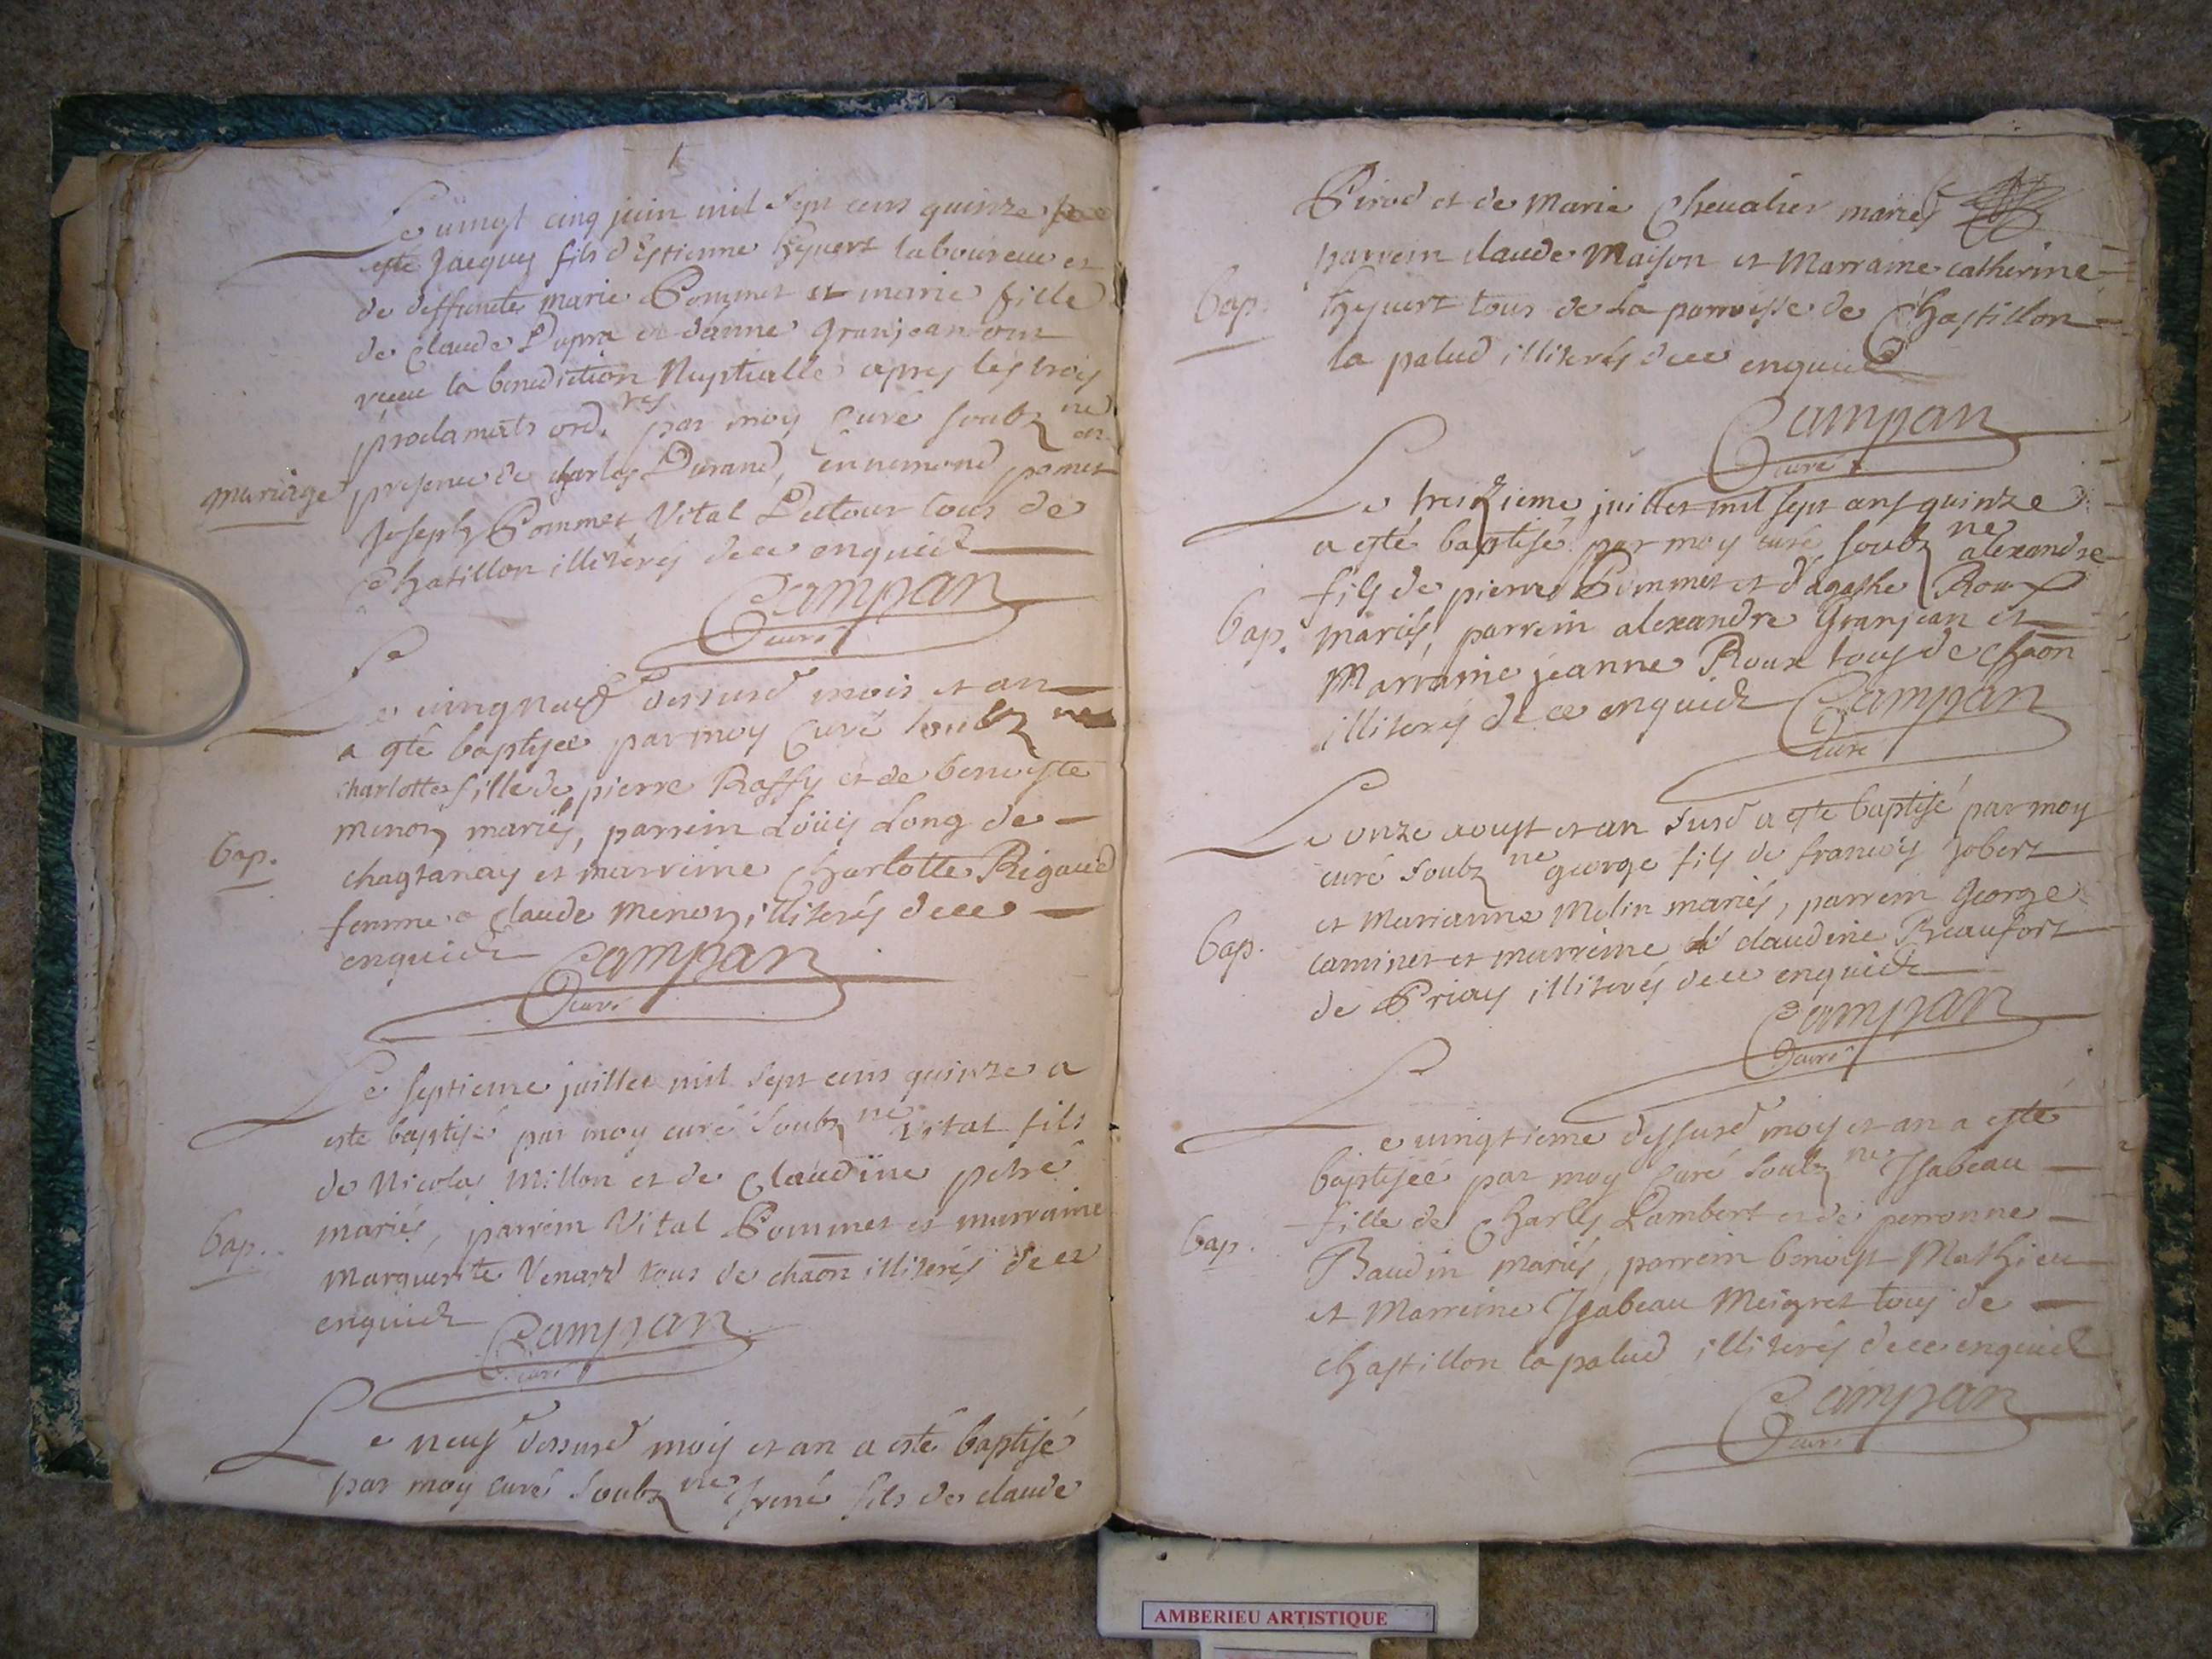 Le uingt cinq juin mil sept cens quinze
esté Jacques fils d'Estienne heyvert laboureur et
de deffuncte marie Pommet et marie fille
de Claude Dupra et danne Granjean ont
receu la benediction Nuptialle apres les trois
proclamats ord.res par moy Curé soubz.né en
mariage
presence de charles Durand, ennemond pomet
Joseph Pommet Vital Dutour tous de
Chatillon illiterés de ce enquich
Campan
curé
Le uingneuf dessusd mois et an
a esté baptisee par moy Curé soubz.né
charlotte fille de pierre Raffy et de benoyste
minon mariés, parrein Loüis Long de
Bap.
chagtanay et marreine Charlotte Rigaud
femme a Claude Menon illiterés de ce
enquich
Campan
curé
Le septieme juillet mil sept cens quinze a
esté baptisé par moy curé soubz.né Vital fils
de Nicolas Millon et de Claudine petre
mariés, parrein Vital Pommet et marraine
Bap.
Marguerite Venard tous de chaon illiterés de ce
enquich
Campan
curé
Le neuf dessusd moy et an a esté baptisé
par moy curé soubz.né Irené fils de claude
Pirod et de Marie Chevalier mariés
parrein claude Maison et Marraine catherine
Bap.
heyvert tous de La parroisse de Chastillon
la palud illiterés de ce enquich
Campan
curé
Le treizieme juillet mil sept cens quinze
a esté baptisé par moy curé soubz.né alexandre
fils de pierre Pommet et d'agathe Roux
Bap.
mariés, parrein alexandre Granjean et
Marraine jeanne Roux tous de chaon
illiterés de ce enquich
Campan
curé
Le onze aoust et an susd a esté baptisé par moy
curé soubz.né george fils de francois Jobert
et Marianne Molin mariés, parrein George
Bap.
caminet et marreine claudine Beaufort
de Priay illiterés de ce enquich
Campan
curé
Le uingtieme dessusd moy et an a esté
baptisée par moy Curé soubz.né Isabeau
fille de Charles Lambert et de perronne
Bap.
Baudin mariés, parrein benoist Mathieu
et Marreine Isabeau Meigret tous de
chastillon la palud illiterés de ce enquich
Campan
curé
AMBERIEU ARTISTIQUE